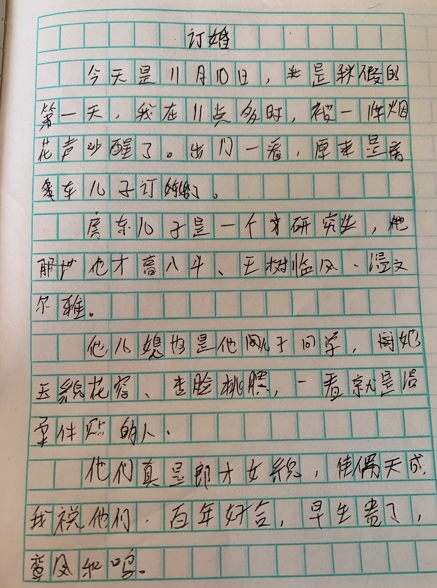 订婚
今天是11月10日，也是秋假的
第一天，我在11点多时，被一阵烟
花声吵醒了。出门一看，原来是房
东儿子订婚了。
房东儿子是一个研究生，他
也才高八斗、玉树临风、温文
尔雅。
他儿媳也是他同学，
玉貌花容、杏脸桃腮，一看就是
的人．
他们真是郎才女貌，佳偶天成
我祝他们．百年好合，早生贵子，
鸾凤和鸣。